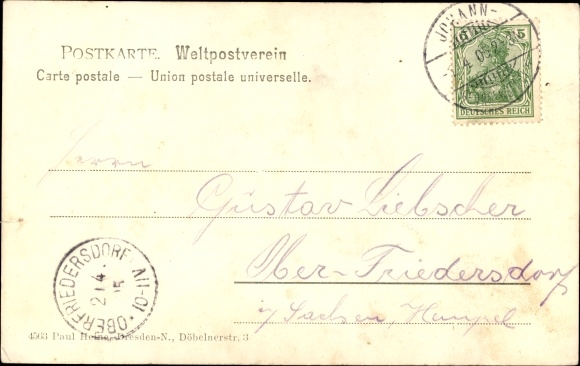 POSTKARTE. Weltpostverein
Carte postale — Union postale universelle.
5
DEUTSCHES REICH
JOHANN-
Herrn
Gustav Liebscher
Ober-Friedersdorf
i/ Sachsen,
OBERFRIEDERSDORF
4503 Paul Heine, Dresden-N., Döbelnerstr. 3